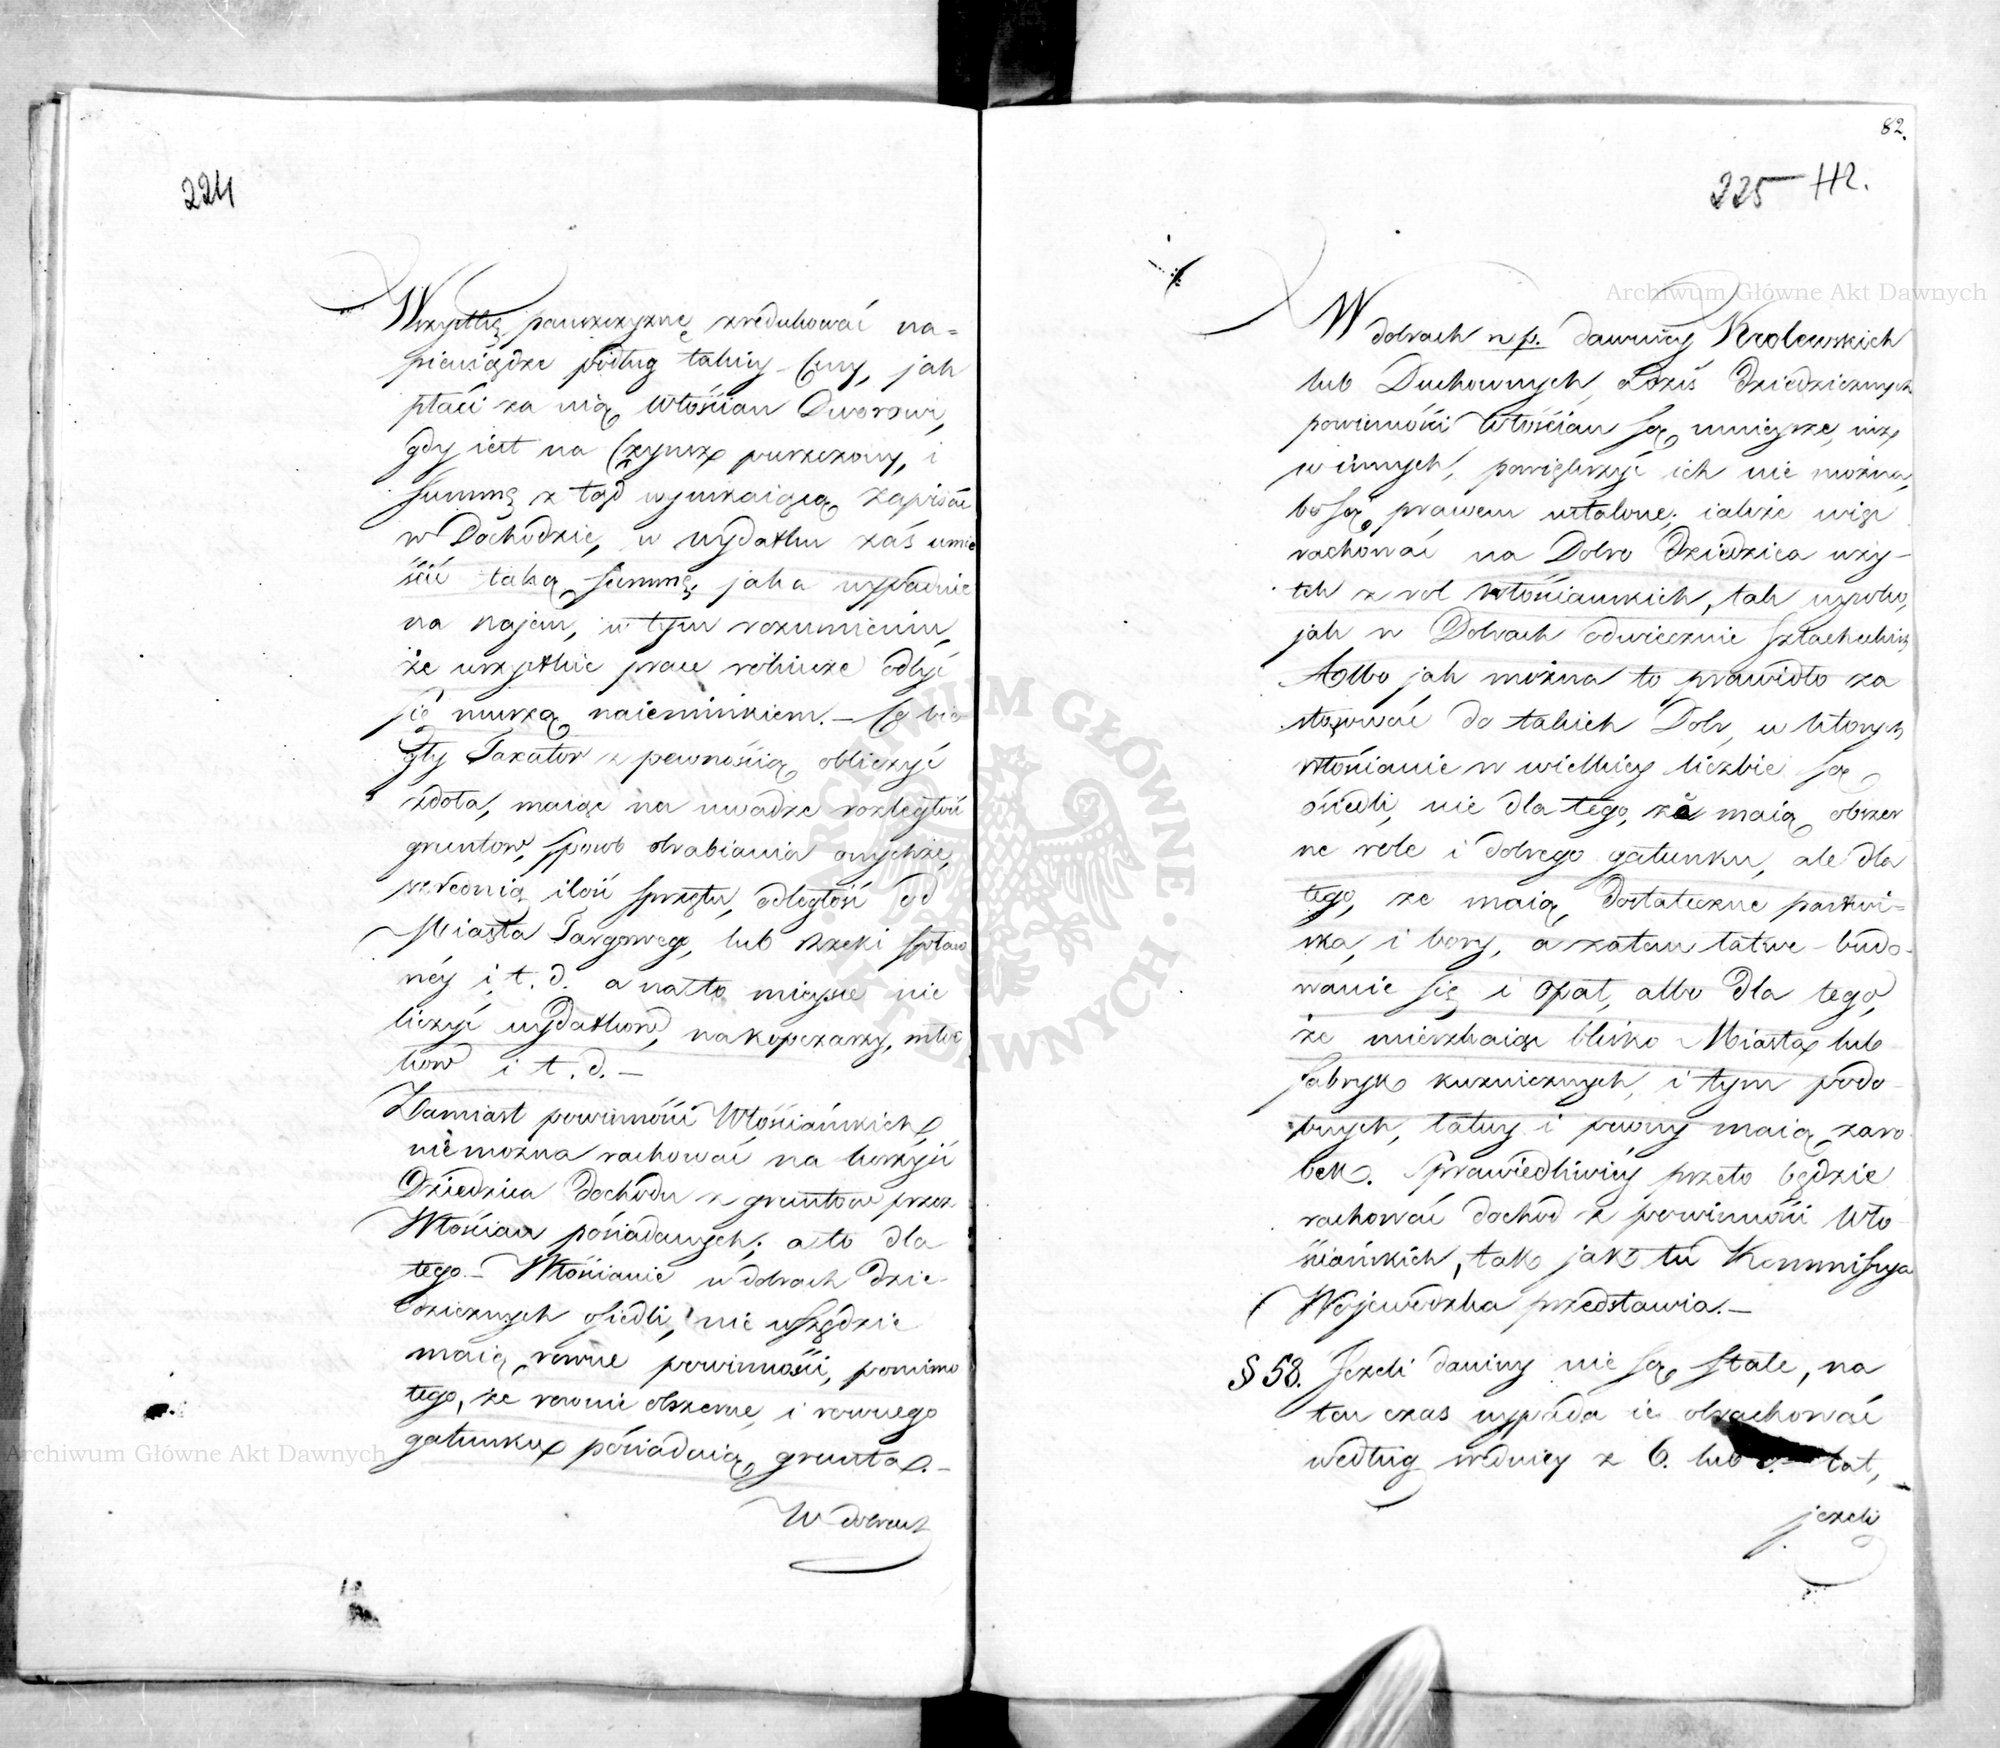 224
Wszystkę pańszczyznę zredukować na=
pieniądze podług takiey Ceny, jak
płaci za nią Włościan Dworowi,
gdy iest na Czynsz puszczony, i
Summę z tąd wynikaiącą zapisać
w Dochodzie, w wydatku zaś umie
ścić taką Summę, jaka wypadnie
na najem, w tym rozumieniu,
że wszystkie prace rolnicze odbyć
się muszą naiemnikiem. – Co bie
gły Taxator z pewnością obliczyć
zdoła, maiąc na uwadze rozległość
gruntow, sposob obrabiania onychże,
szrednią ilość sprzętu, odległość od
Miasta Targowego, lub Rzeki spław
néy i t. d. a na to mieysce nie
liczyć wydatkow, na kopczarzy, młoc
kow i t. d. –
Zamiast powinności Włościańskich
nie można rachować na korzyść
Dziedzica dochodu z gruntow przez
Włościan posiadanych; a to dla
tego – Włościanie w dobrach dzie
dzicznych osiedli, nie wszędzie
maią rowne powinności, pomimo
tego, że rownie obszerne, i rownego
gatunku posiadaią grunta. –
W dobrach
82.
225 – 112.
W dobrach n p. dawniey Krolewskich
lub Duchownych, dziś dziedzicznych
powinności Włościan są mnieysze, niż
w innych, powiększyć ich nie można,
bo są prawem ustalone; iakże więc
rachować na Dobro Dziedzica uży–
tek z rol włościańskich, tak wysoko,
jak w Dobrach odwiecznie szlacheckich
Albo jak można to prawidło za
stosować do takich Dobr, w ktorych
włościanie w wielkiey liczbie są
osiedli, nie dla tego, że maią obszer
ne role i dobrego gatunku, ale dla
tego, że maią dostateczne pastwi=
ska, i bory, a zatem łatwe budo–
wanie się i opał, albo dla tego,
że mieszkaiąc blisko Miasta lub
fabryk kuzniczych, i tym podo
bnych, łatwy i pewny maią zaro
bek. Sprawiedliwiey przeto będzie
rachować dochod z powinności Wło
ściańskich, tak jak tu Kommissya
Wojewodzka przedstawia. –
§ 58. Jeżeli daniny nie są stałe, na
ten czas wypada ie obrachować
według średniey z 6. lub lat,
jeżeli
Archiwum Główne Akt Dawnych
Archiwum Główne Akt Dawnych
ARCHIWUM GŁÓWNE · AKT DAWNYCH ·